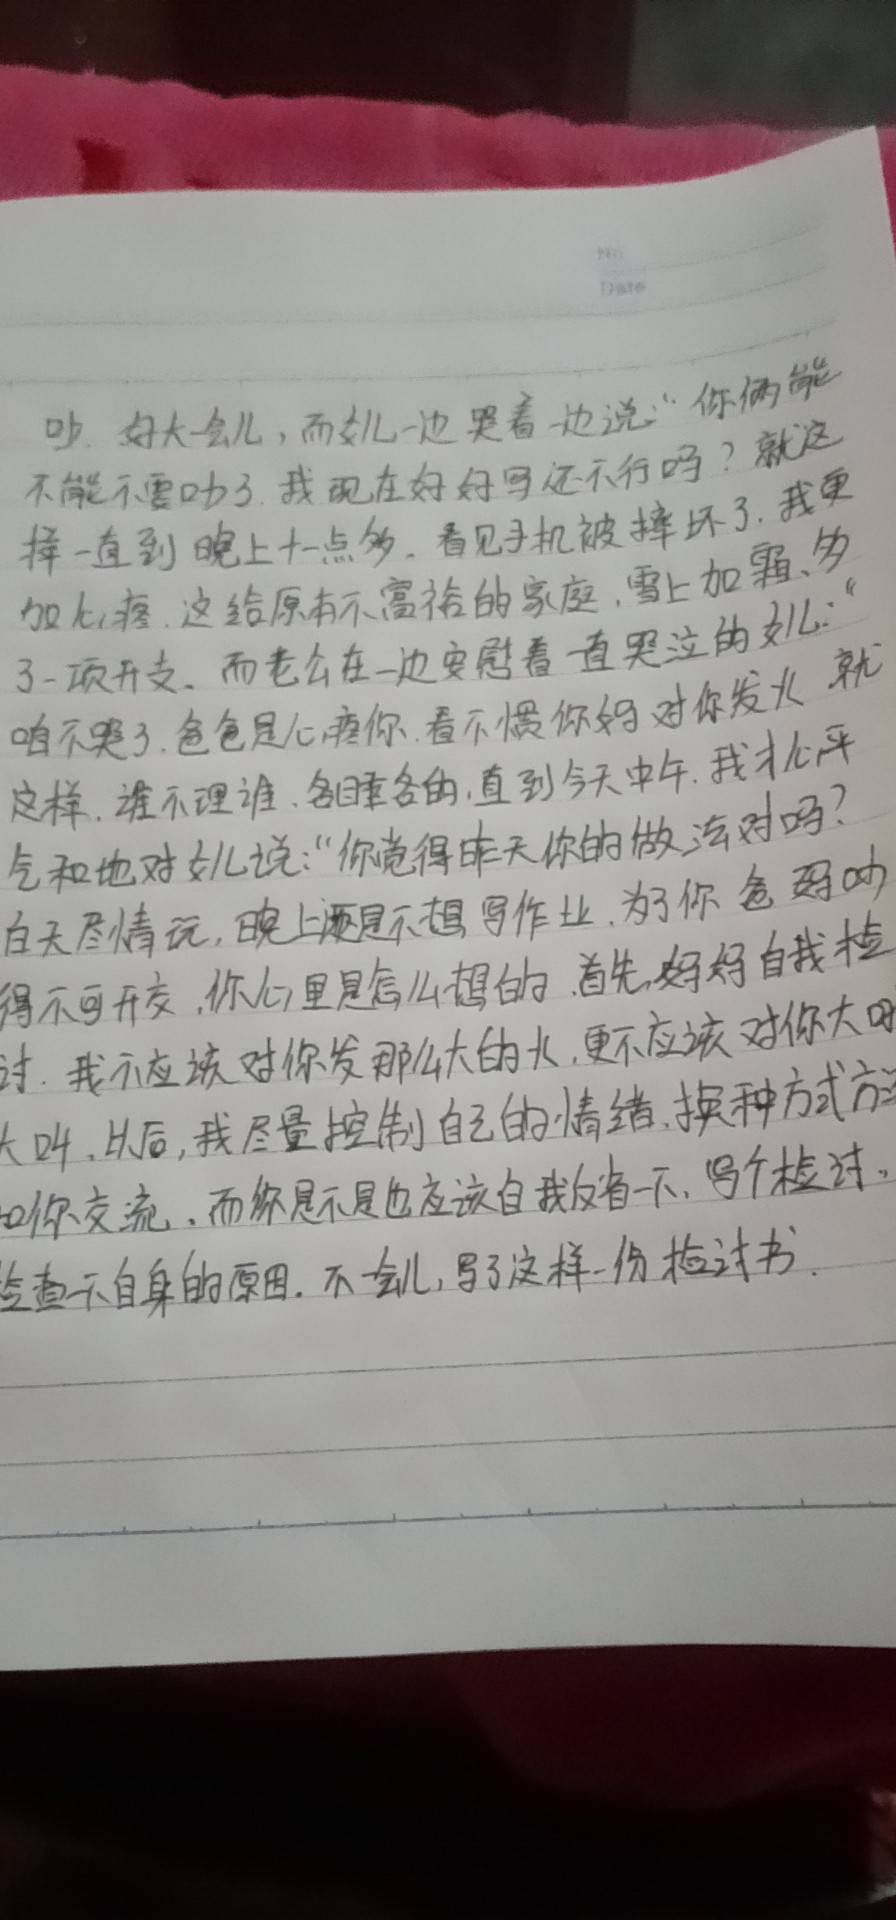 No:
Date
吵. 好大一会儿，而女儿一边哭着一边说：“你俩能
不能不要吵了. 我现在好好写还不行吗？就这
样一直到晚上十一点多. 看见手机被摔坏了. 我更
加心疼. 这给原本不富裕的家庭, 雪上加霜、多
了一项开支。而老公在一边安慰着一直哭泣的女儿：“
咱不哭了. 爸爸是心疼你. 看不惯你妈对你发火 就
这样. 谁不理谁. 各睡各的, 直到今天中午. 我才心平
气和地对女儿说：“你觉得昨天你的做法对吗？
白天尽情玩, 晚上还是不想写作业. 为了你 爸妈吵
得不可开交, 你心里是怎么想的. 首先, 妈妈自我检
讨. 我不应该对你发那么大的火. 更不应该对你大吼
大叫. 以后, 我尽量控制自己的情绪. 换种方式方法
和你交流. 而你是不是也应该自我反省一下. 写个检讨。
检查一下自身的原因. 不一会儿, 写了这样一份检讨书.